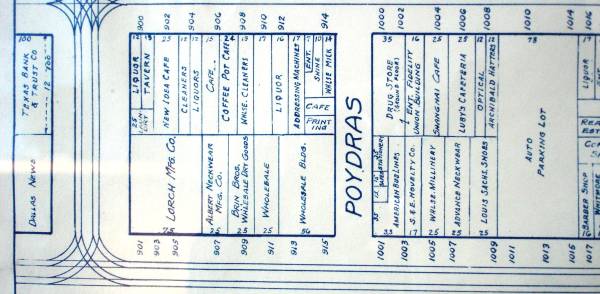 900
902
904
906
908
910
912
914
1000
1002
1004
1006
1008
1010
1014
1016
100
TEXAS BANK
& TRUST CO
12 YDO
DALLAS NEWS
12
13
LIQUOR
TAVERN
25
NEW IDEA CAFE
12
CLEANERS
12
LIQUORS
15
CAFE
24
COFFEE POT CAFE
15
WHSE. CLEANERS
17
16
LIQUOR
17
ADDRESSING MACHINES
7
ENT.
10
SHINE
14
WHITE MILK
CAFE
PRINT
ING
25
LORCH MFG. CO.
75
ALBERT NECKWEAR
MFG. CO.
25
BRIN BROS.
WHOLESALE DRY GOODS
25
WHOLESALE
25
WHOLESALE BLDG.
56
901
903
905
907
909
911
913
915
POYDRAS
35
DRUG STORE
(GROUND FLOOR)
4
ENT. FIDELITY
UNION BUILDING
16
SHANGHAI CAFE
25
LUBY'S CAFETERIA
12
OPTICAL
12
ARCHIBALD HATTERS
78
AUTO
PARKING LOT
17
LIQUOR
ENT
REA
EST
STATIONERY
AMERICAN BUS LINES
33
S. & E. NOVELTY CO.
17
WHLSE. MILLINERY
25
ADVANCE NECKWEAR
25
LOUIS SACHS, SNOBS
25
BARBER SHOP
WHITMORE
16
1001
1003
1005
1007
1009
1011
1013
1015
1017